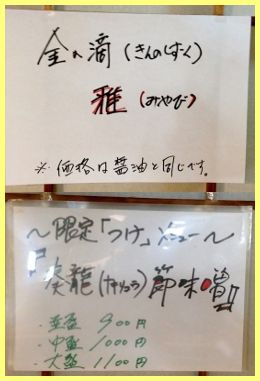 金の滴(きんのしずく)
雅(みやび)
※価格は醤油と同じです。
〜限定「つけ」メニュー〜
『奏龍(そうりゅう)節味噌』
・並盛 900円
・中盛 1000円
・大盛 1100円